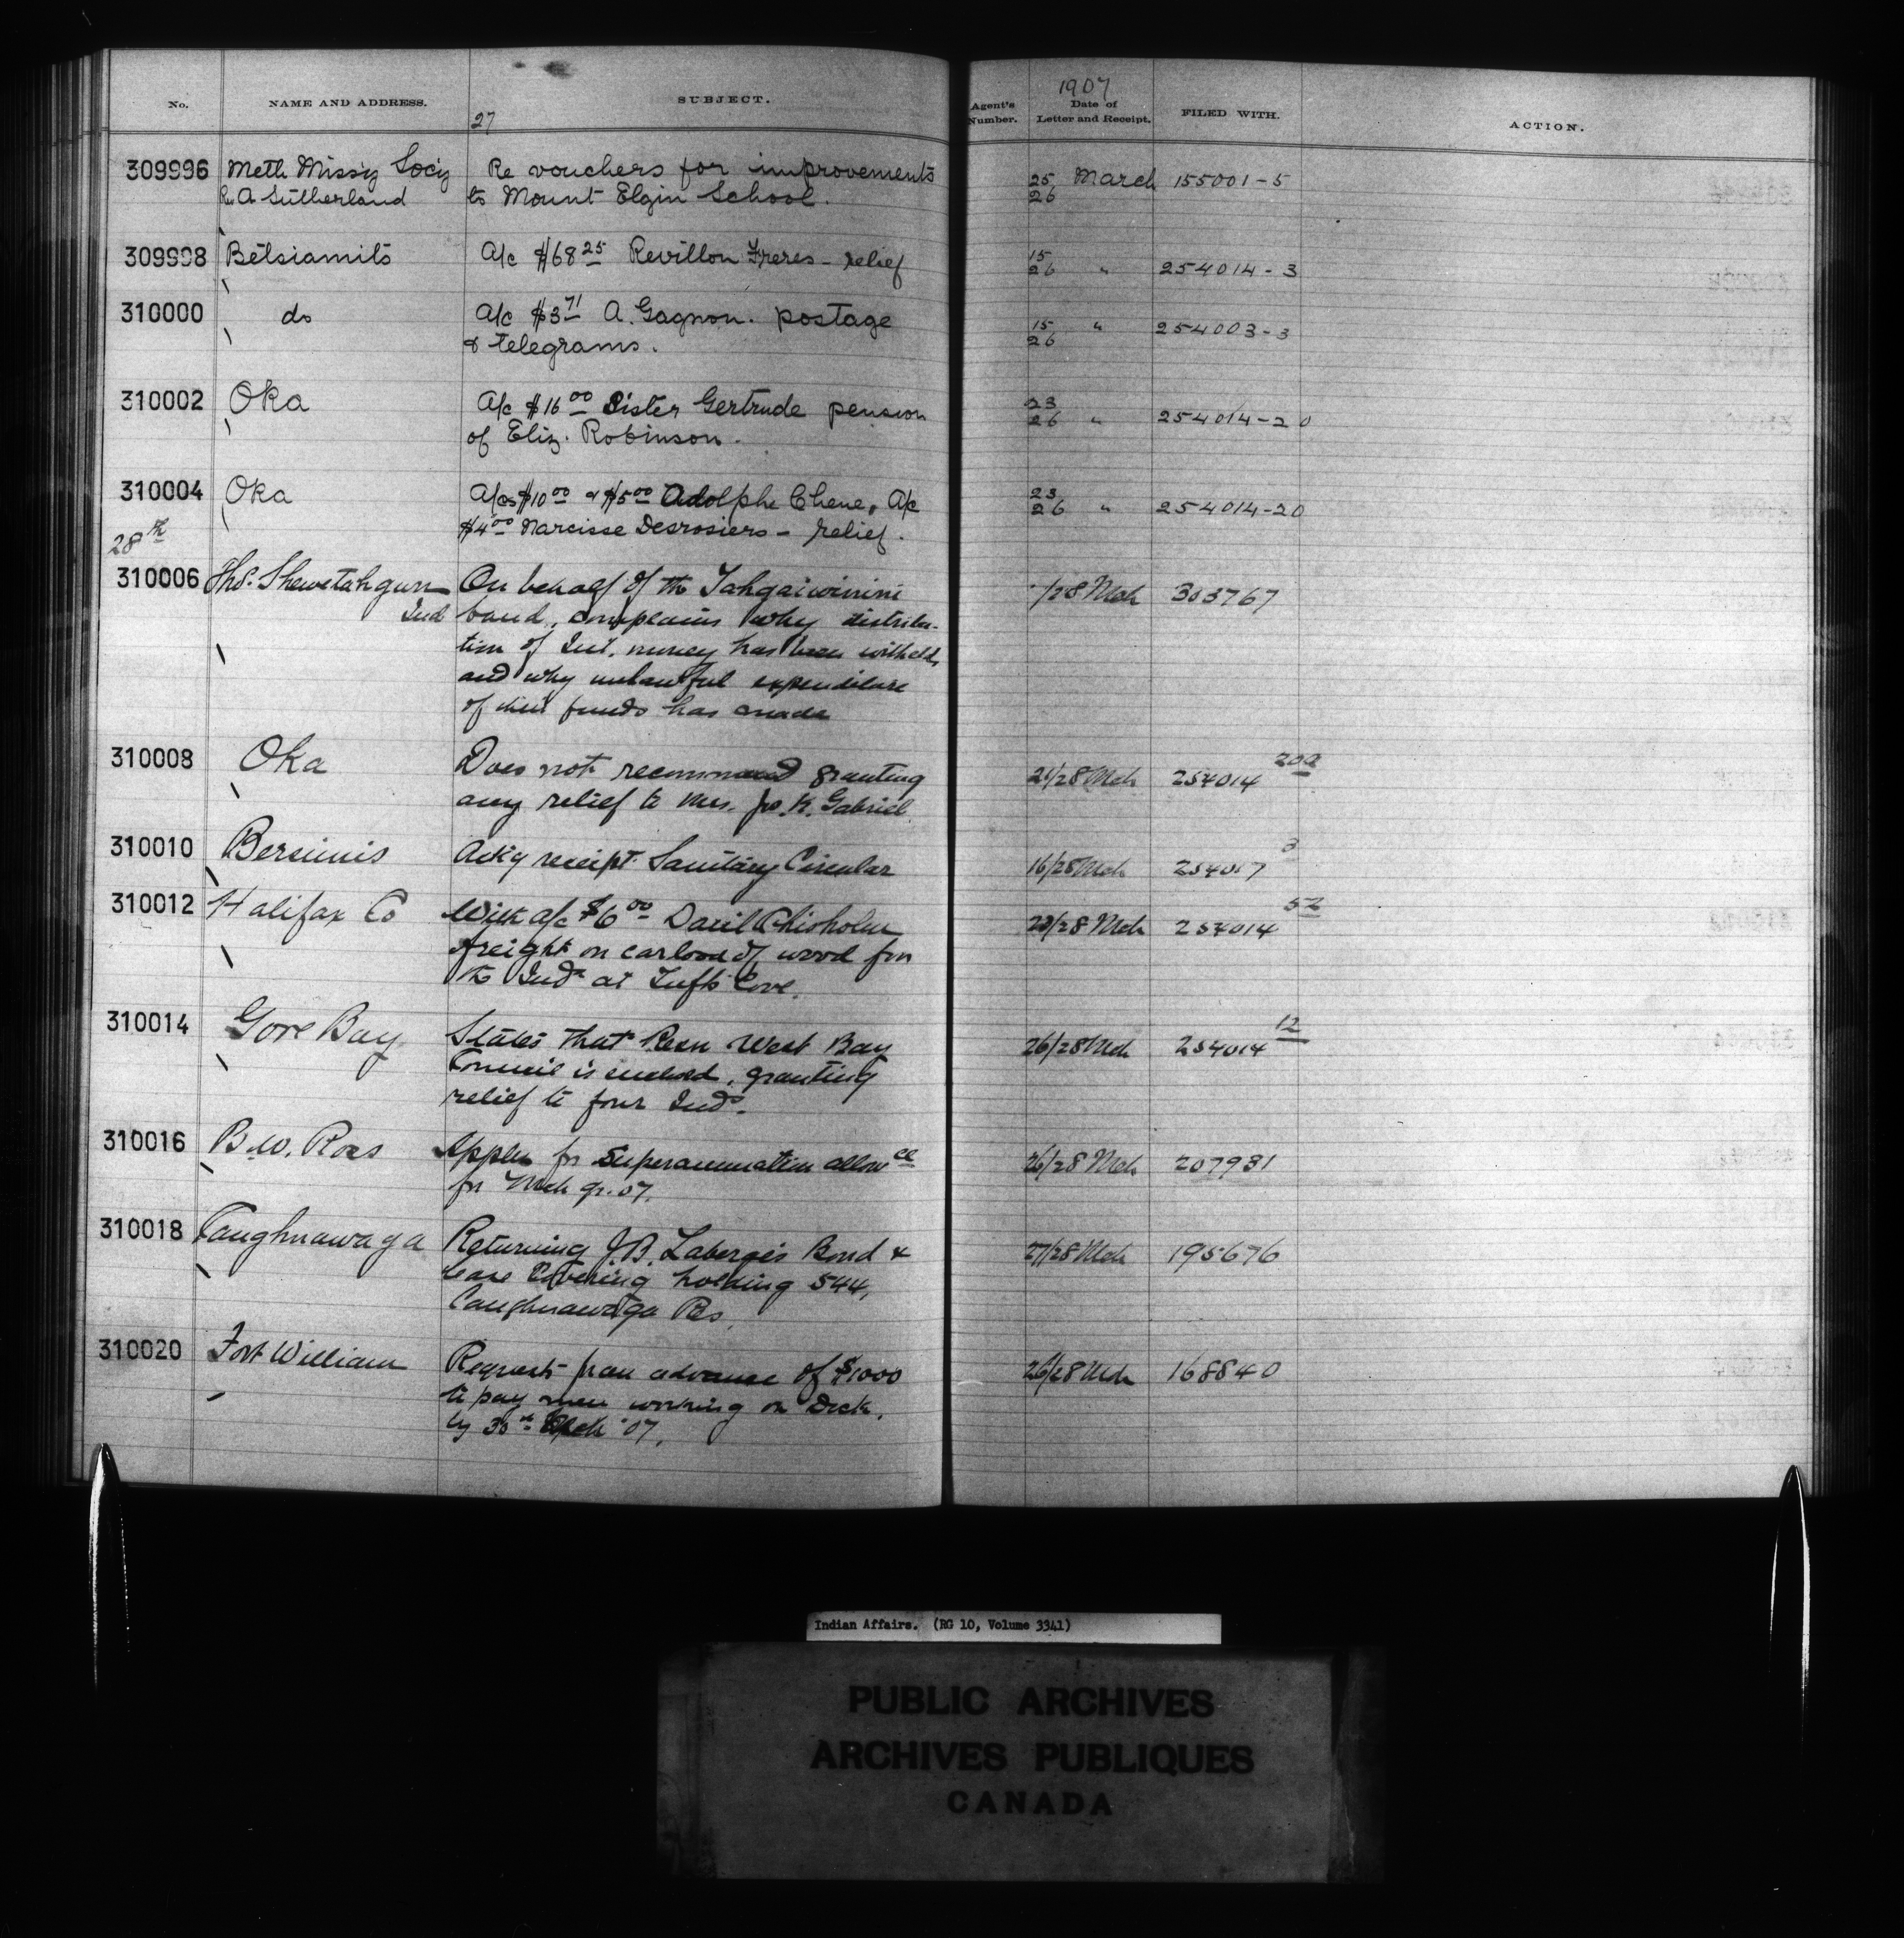 No. NAME AND ADDRESS. SUBJECT. Agent's Number. 1907 Date of Letter and Receipt. FILED WITH. ACTION.
27
309996 Meth Missiy Sociy Re vouchers for improvements 25 March 155001-5
Rev A Sutherland to Mount Elgin School. 26
309998 Betsiamits A/c $68 25 Revillon Freres - relief 15/26 " 254014-3
310000 do A/c $3 71 A. Gagnon. postage 15/26 " 254003-3
& telegrams.
310002 Oka A/c $16 00 Sister Gertrude pension 23/26 " 254014-20
of Eliz. Robinson.
310004 Oka A/cs $10 00 & $5 00 Adolphe Chene, A/c 23/26 " 254014-20
$4 00 Narcisse Desrosiers - relief.
28th
310006 Thos. Shewetahgun On behalf of the Tahgaiwinini /28 Mch 303767
Ind band, complains why distribu-
tion of Int. money has been witheld,
and why unlawful expenditure
of their funds has made
310008 Oka Does not recommend granting 21/28 Mch 254014 20a
any relief to Mrs. Jos. K. Gabriel
310010 Bersimis Ack'g receipt Sanitary Circular 16/28 Mch 254017 3
310012 Halifax Co With a/c $6 00 Chisholm 23/28 Mch 254014 52
freight on carload of wood for
the Inds at Tufts Cove.
310014 Gore Bay States that Resn West Bay 26/28 Mch 254014 12
Council is enclosed, granting
relief to four Inds.
310016 B.W. Ross Applies for Superannuation allowce 26/28 Mch 207931
for Mch qr. 07.
310018 Caughnawaga Returning J.B. Laberge's Bond & 27/28 Mch 195676
lease covering holding 544,
Caughnawaga Res.
310020 Fort William Requests for an advance of $1000 26/28 Mch 168840
to pay men working on Dock,
by 30th Mch '07.
Indian Affairs. (RG 10, Volume 3341)
PUBLIC ARCHIVES
ARCHIVES PUBLIQUES
CANADA